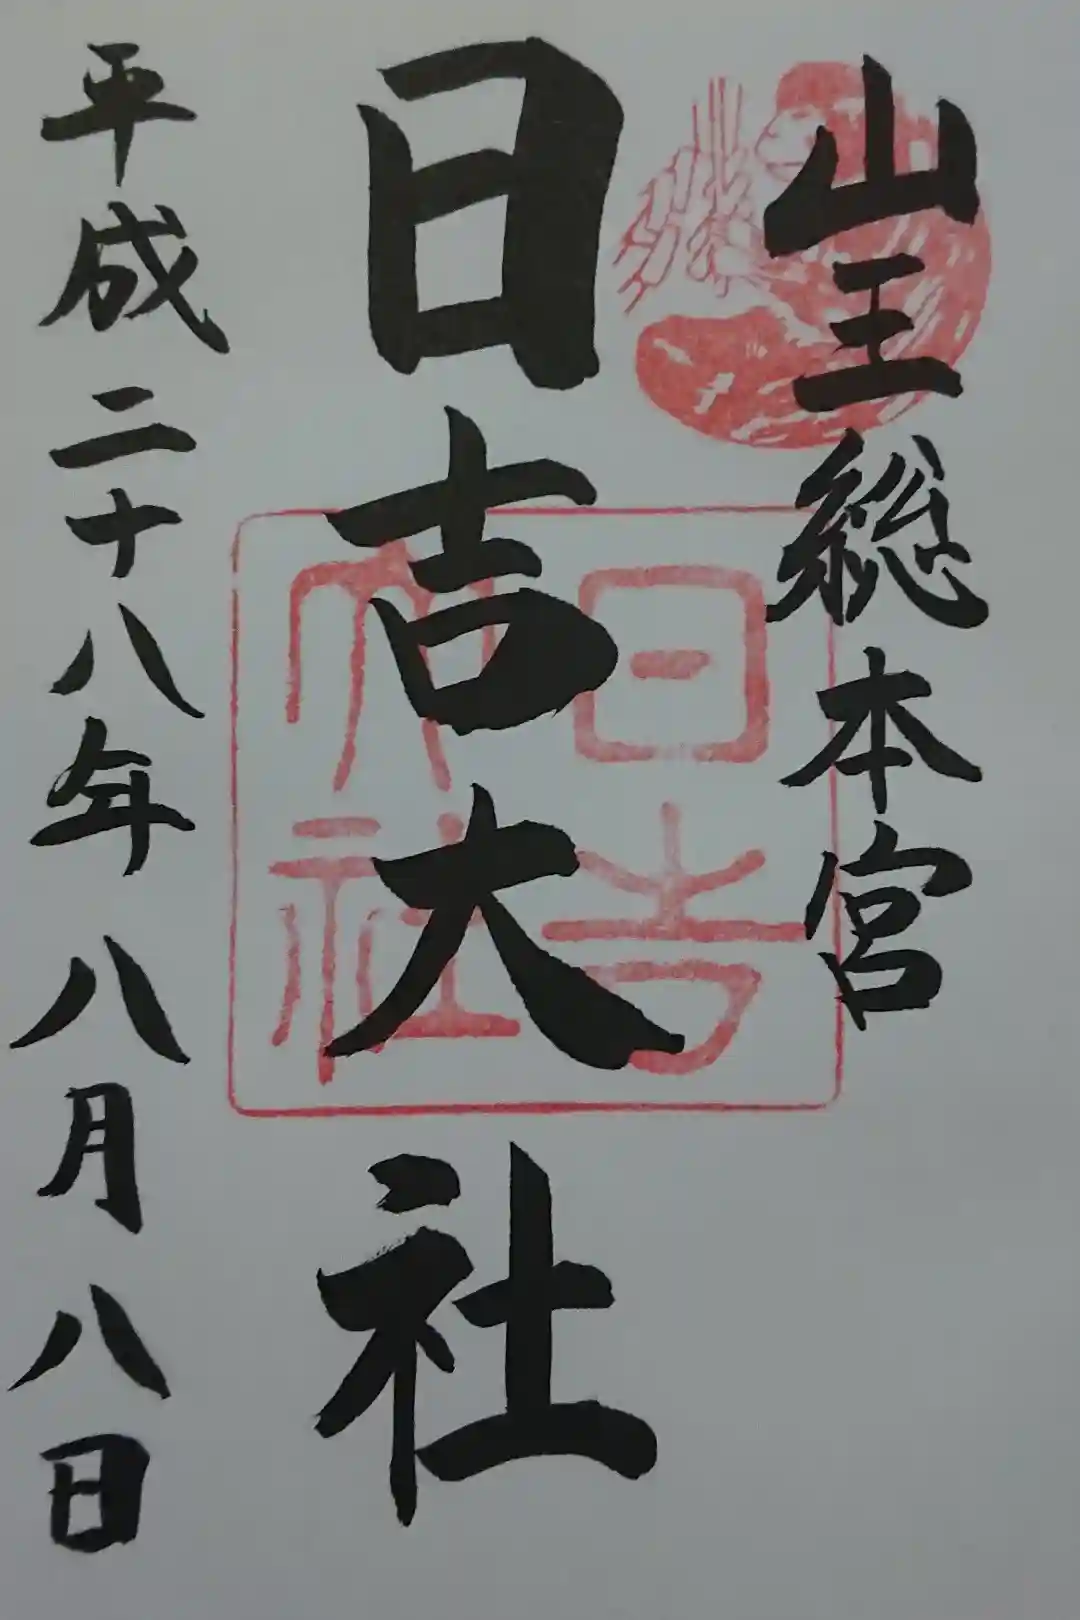 山王総本宮
日吉大社
日吉
大社
平成二十八年八月八日